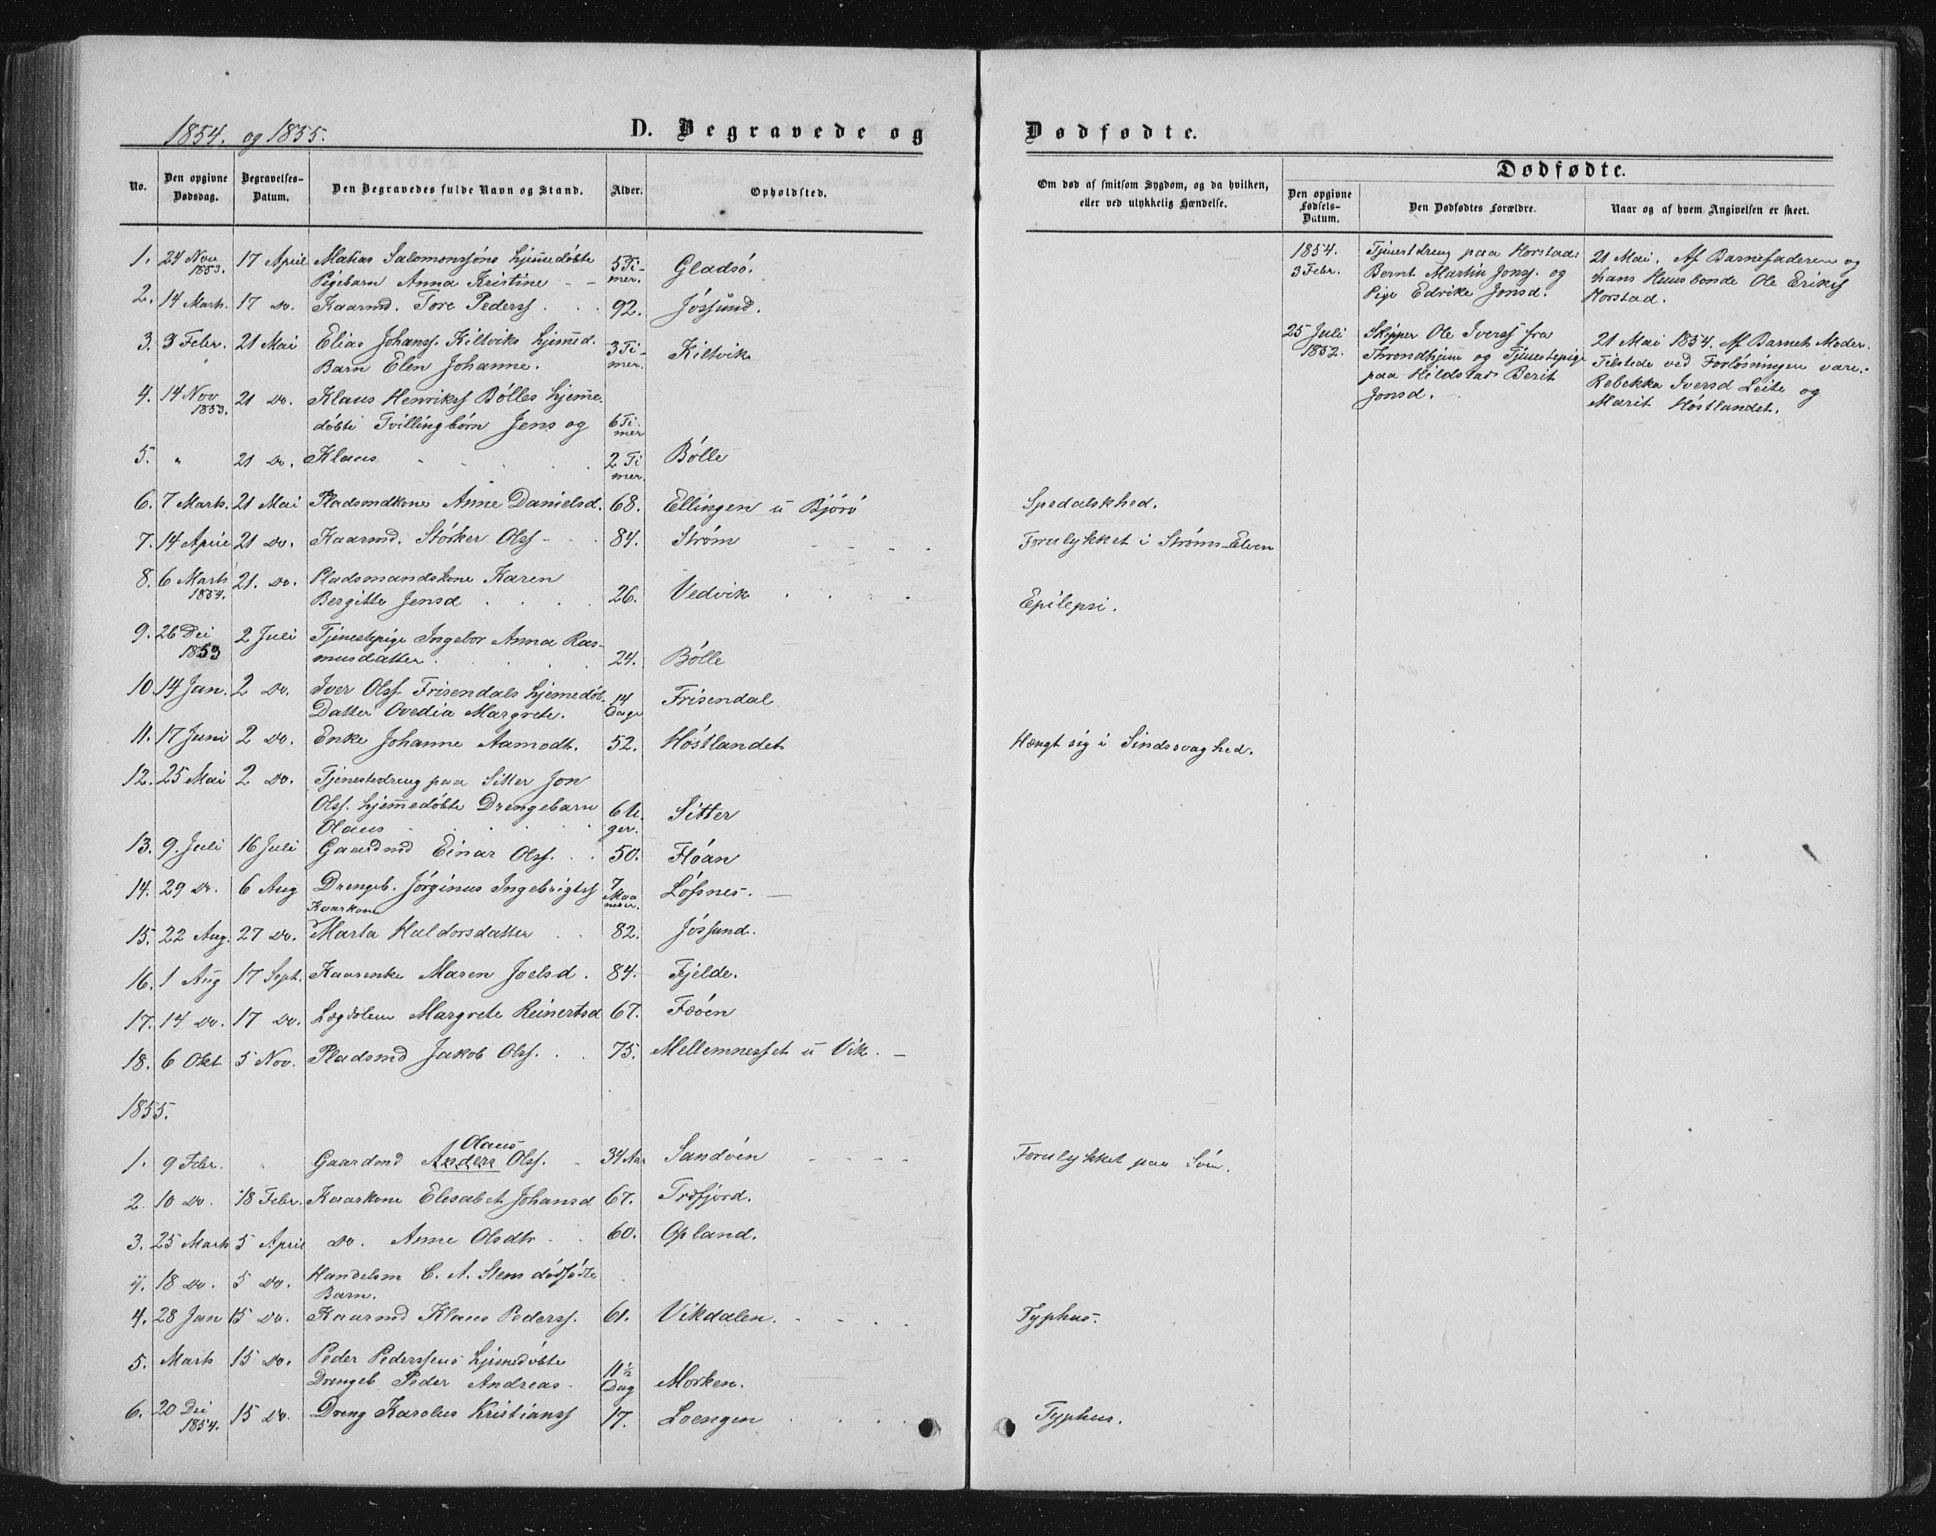 1854. og 1855.
D. Begravede og Dødfødte.
No.
Den opgivne Dødsdag.
Begravelses-Datum.
Den Begravedes fulde Navn og Stand.
Alder.
Opholdsted.
Om død af smitsom Sygdom, og da hvilken, eller ved ulykkelig Hændelse.
Dødfødte.
Den opgivne Fødsels-Datum.
Den Dødfødtes Forældre.
Naar og af hvem Angivelsen er skeet.
1. 24 Nov 1853. 17 April Matias Salomonsøns hjemmedøbte
Pigebarn Anna Kristine 5 Timer. Gladsø.
2. 14 Marts. 17 Do. Kaarmd. Tore Pederss. 92. Jøssund.
3. 3 Febr. 21 Mai Elias Johanss. Kiltviks hjemmed.
Barn Elen Johanne. 3 Timer. Kiltvik
4. 14 Nov 1853. 21 Do. Klaus Henrikss Bølles hjemme-
døbte Tvillingbørn Jens og 6 Timer
5. " 21 Do. Klaus 2 Timer. Bølle
6. 7 Marts. 21 Mai Pladsmdkone Anne Danielsd. 68. Ellingen u Bjørø Spedalskhed.
7. 14 April 21 Do. Kaarmd. Størker Olss 84. Strøm Forulykket i Strøms-Elven
8. 6 Marts 1854. 21. Do. Pladsmandskone Karen
Bergitte Jensd 26. Vedvik Epilepsi.
9. 26 Dei 1853 2 Juli Tjenestepige Ingebor Anna Ras-
musdatter. 24. Bølle
10. 14 Jan. 2 Do. Iver Olss. Frisendals hjemedøb.
Datter Ovedia Margrete. 14 Dage Frisendal
11. 17 Juni 2 Do. Enke Johanne Aamodt. 52. Høstlandet Hængt sig i Sindssvaghed.
12. 25 Mai 2 Do. Tjenestedreng paa Sitter Jon
Olss. hjemmedøbte Drengebarn
Olaus 6 Uger. Sitter
13. 9. Juli 16 Juli Gaardmd Einar Olss. 50. Fløan
14. 29 Do. 6 Aug Drengeb. Jørginus Ingebrigtss 7 Maaneder. Løfsnes.
Kaarkone
15. 22 Aug. 27 Do. Marta Haldorsdatter 82. Jøssund.
16. 1 Aug 17 Sept. Kaarenke Maren Joelsd. 84. Fjelde.
17. 14 Do. 17 Do. Lægdslem Margrete Reinertsd 67. Fæøen
18. 6 Okt 5 Nov. Pladsmd Jakob Olss. 75. Mellemnesset u Vik.
1855.
Olaus
1. 9 Febr. " Gaardmd Anders Olss. 34 Aar Sandøen Forulykket paa Søen.
2. 10 Do. 18 Febr. Kaarkone Elisabet Johansd 67. Træfjord.
3. 25 Marts 5 April Do. Anne Olsdtr 60. Opland.
4. 18 Do. 5 Do. Handelsm C. A. Stens dødfødte
Barn.
4. 28 Jan 15 Do. Kaarmd Klaus Pederss. 61. Vikdalen. Typhus.
5. Marts 15 Do. Peder Pederssens hjemedøbte
Drengeb Peder Andreas 11½ Dag Morken.
6. 20 Dei 1854. 15 Do. Dreng Karolus Kristianss 17. Loengen Typhus.
1854.
3 Febr. Tjenestdreng paa Horstad
Bernt Martin Jonss. og
Pige Edrike Jonsd.
21 Mai. Af Barnefaderen og
hans Huusbonde Ole Erikss
Horstad.
25 Juli 1852. Skipper Ole Iverss fra
Throndhjem og Tjenestepige
paa Hildstad Berit
Jonsd.
21 Mai 1854. Af Barnets Moder.
Tilstede ved Forløsningen vare:
Rebekka Iversd Leite og
Marit Høstlandet.